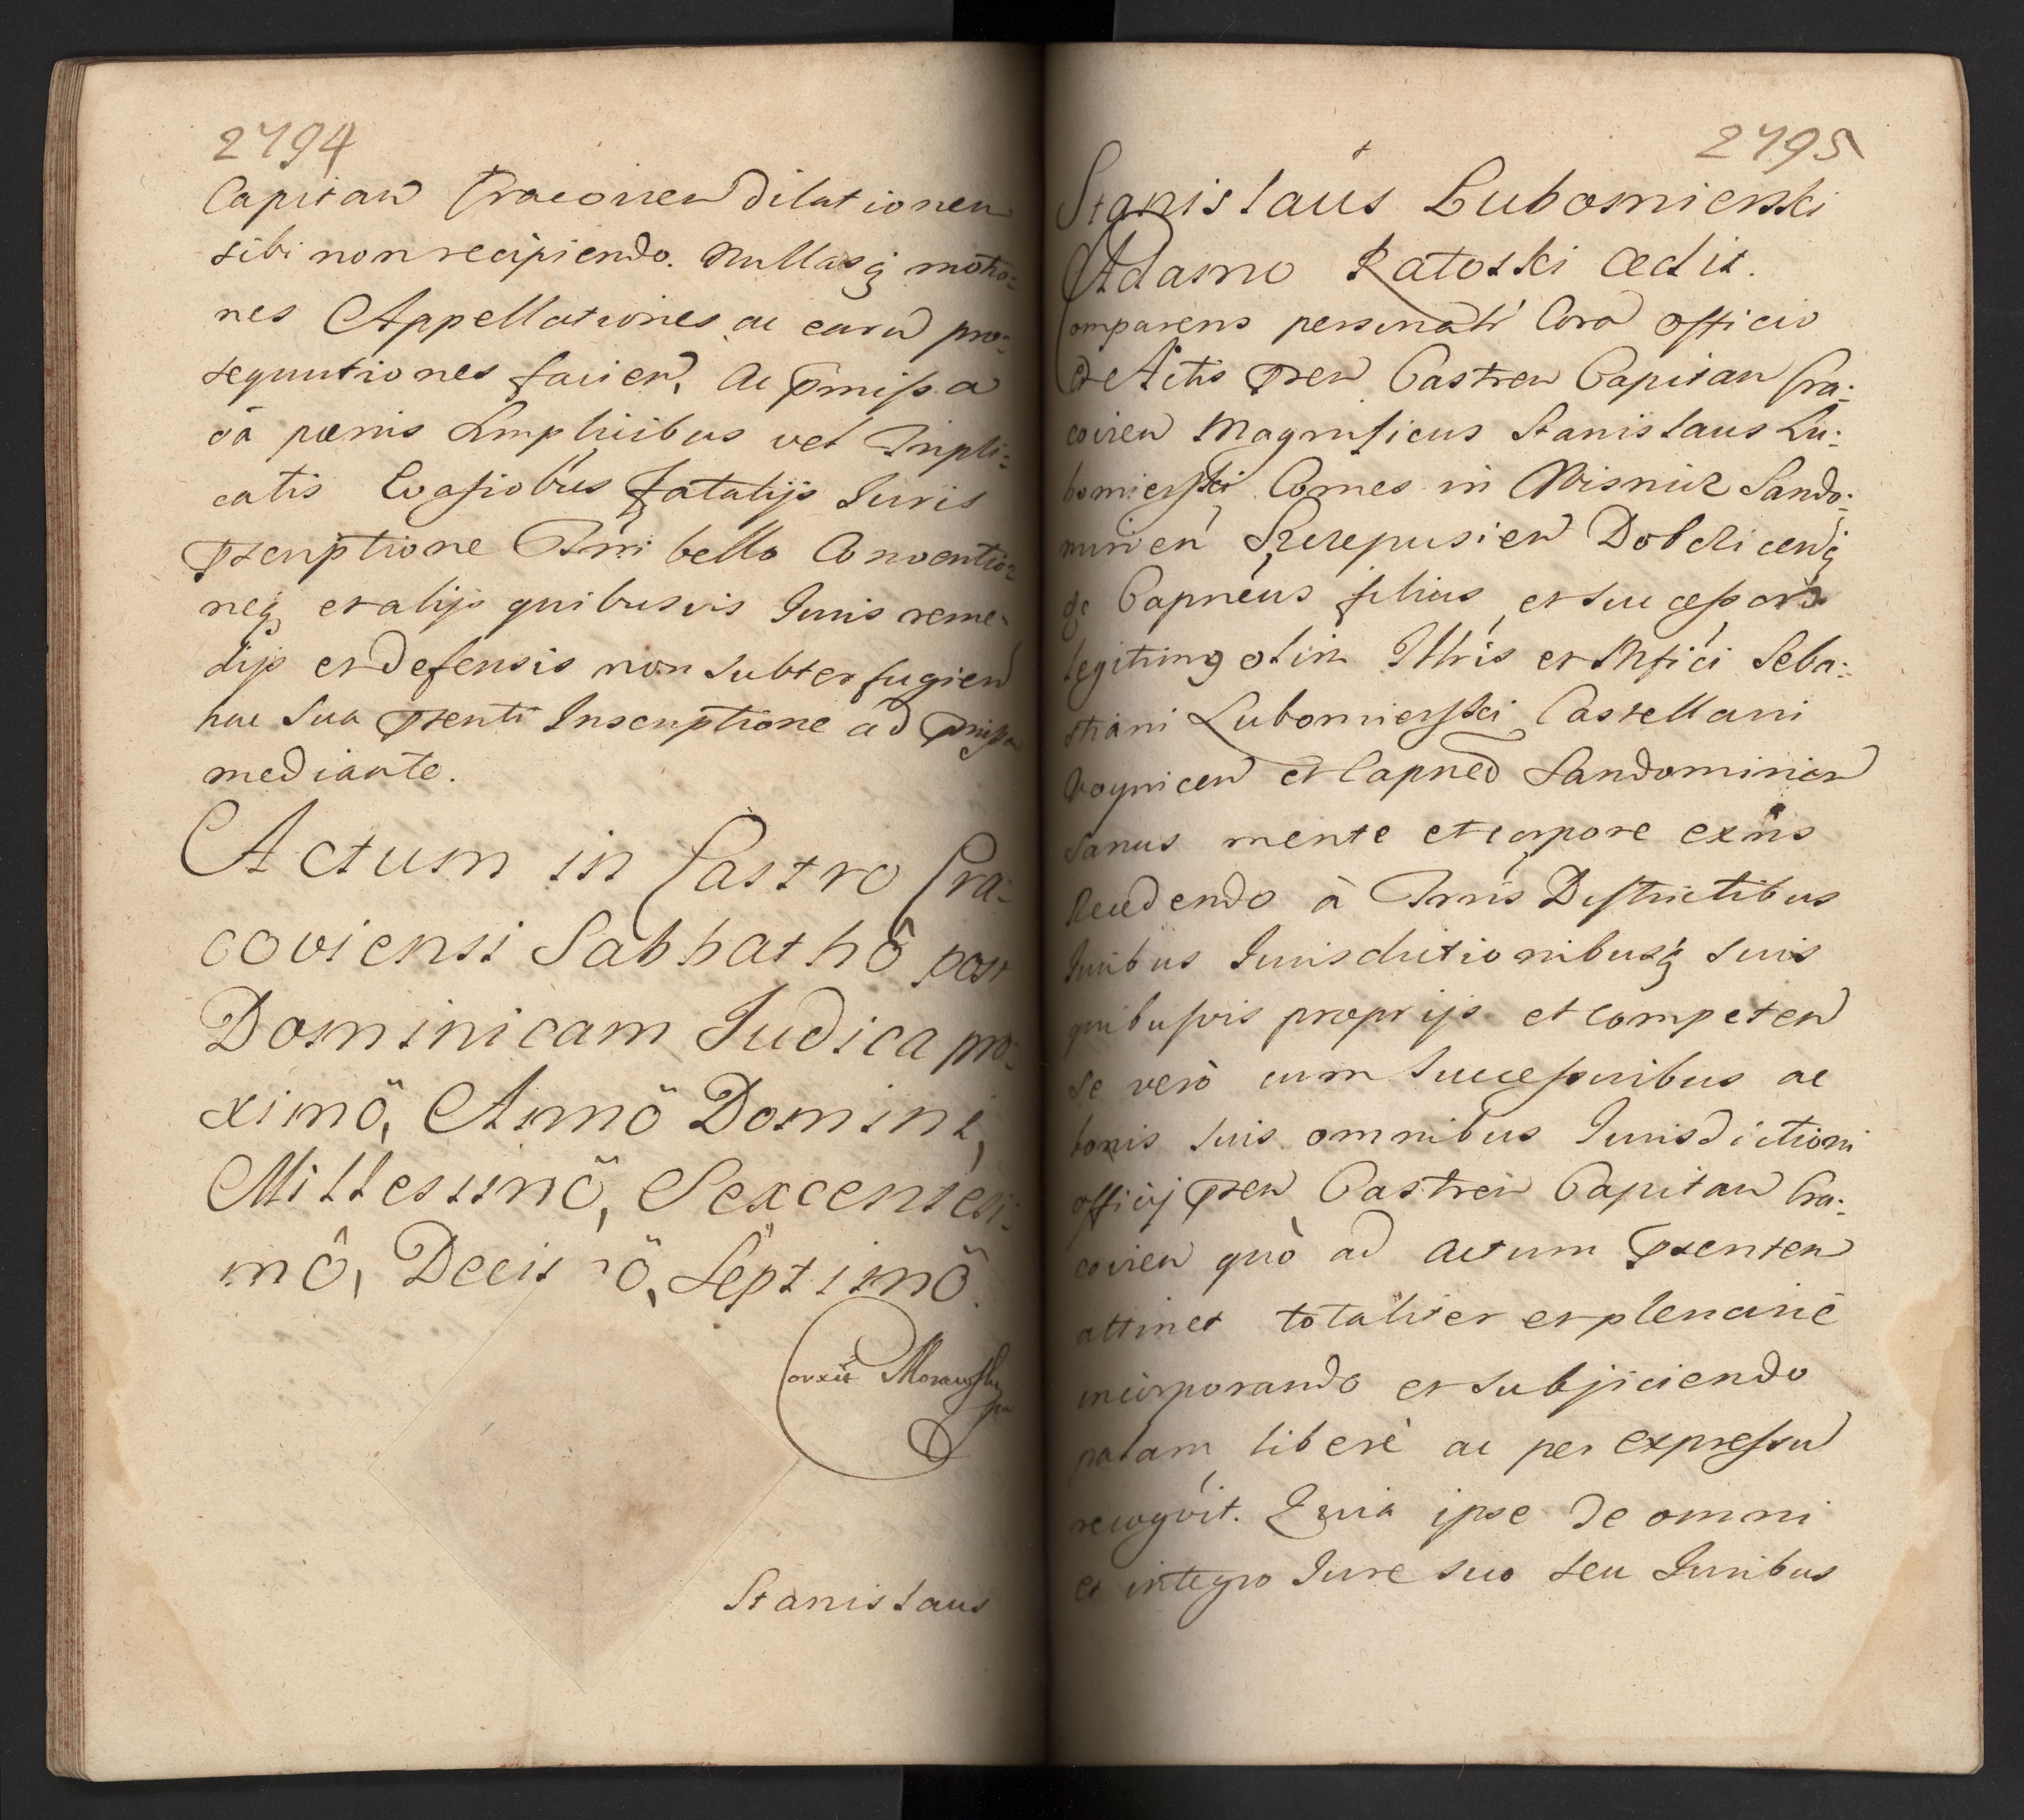 2794
Capitan Cracovien dilationem
sibi non recipiendo. Nullasq motio-
nes Appellationes ac earu pro-
sequutiones facien, Ac pmissa
oa pœnis simplicibus vel Tripli-
catis Evasiobus fatalijs Juris
pscriptione Trri bello Conventio-
neq et alijs quibusvis Juris reme-
dijs et defensis non subterfugien
hac sua psenti Inscriptione ad pmissa
mediante.
Actum in Castro Cra-
coviensi Sabbathô post
Dominicam Judica pro-
ximö, Annö Domini,
Millesimö, Sexcentesi-
mô, Decimö, Septimö.
Corrxit Morawsky
mp
Stanislaus
2795
Stanislaus Lubomierski
Adamo Ratoski cedit.
Comparens personalr Cora officio
et Actis psen Castren Capitan Cra-
covien Magnificus Stanislaus Lu-
bomierski Comes in Wisnicz Sando-
mirien Scepusien Dobcziceñq
gc Capneus filius et successor
legitimq olim Illris et Mfici Seba-
stiani Lubomierski Castellani
Voynicen et Capned Sandomirien
sanus mente et corpore exñs
Recedendo à Trris Districtibus
Juribus Jurisdictionibusq suis
quibusvis proprijs et competen
Se verò cum Successoribus ac
bonis suis omnibus Jurisdictioni
officij psen Castren Capitan Cra-
covien quò ad Actum psentem
attinet totaliter et plenarie
incorporando et subjiciendo
palam liberè ac per expressu
recogvit. Quia ipse de omni
et integro Jure suo seu Juribus